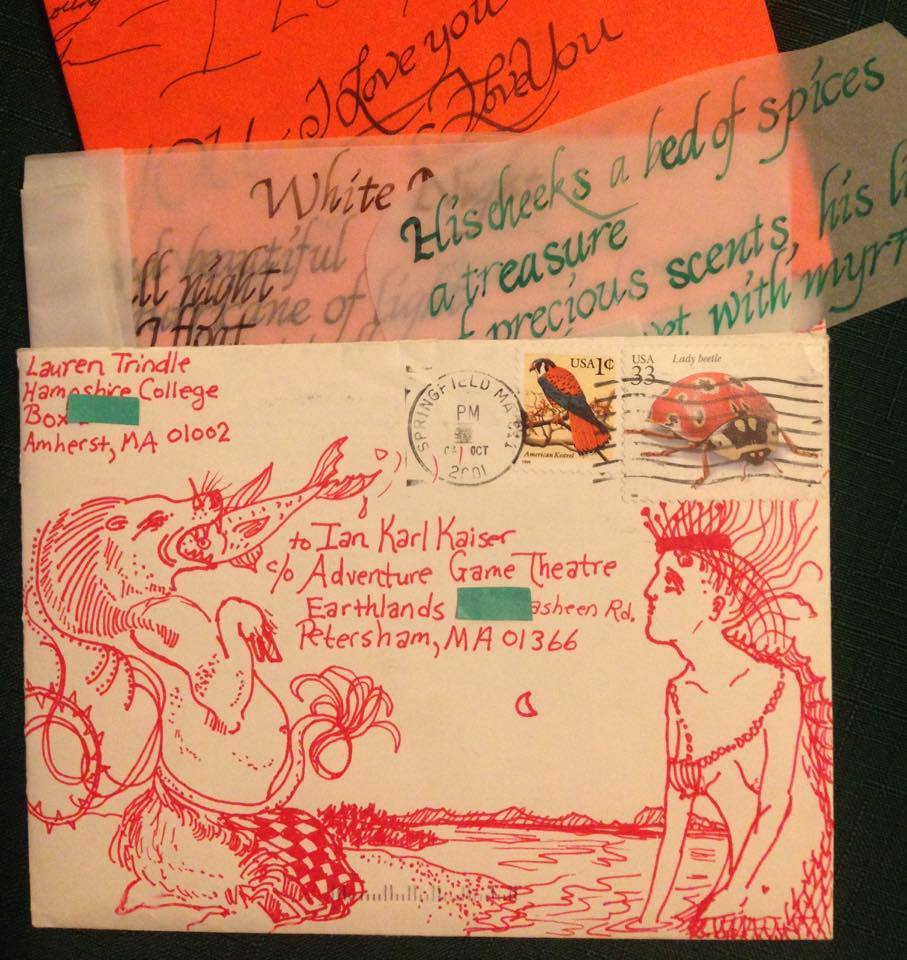 I Love you
I Love You
White
His cheeks a bed of spices
a treasure
precious scents, his
with
beautiful
night
hurricane of light
I float
Lauren Trindle
Hampshire College
Box
Amherst, MA 01002
SPRINGFIELD MA
PM
OCT
2001
USA 1¢
American Kestrel
USA
33
Lady beetle
to Ian Karl Kaiser
c/o Adventure Game Theatre
Earthlands asheen Rd.
Petersham, MA 01366